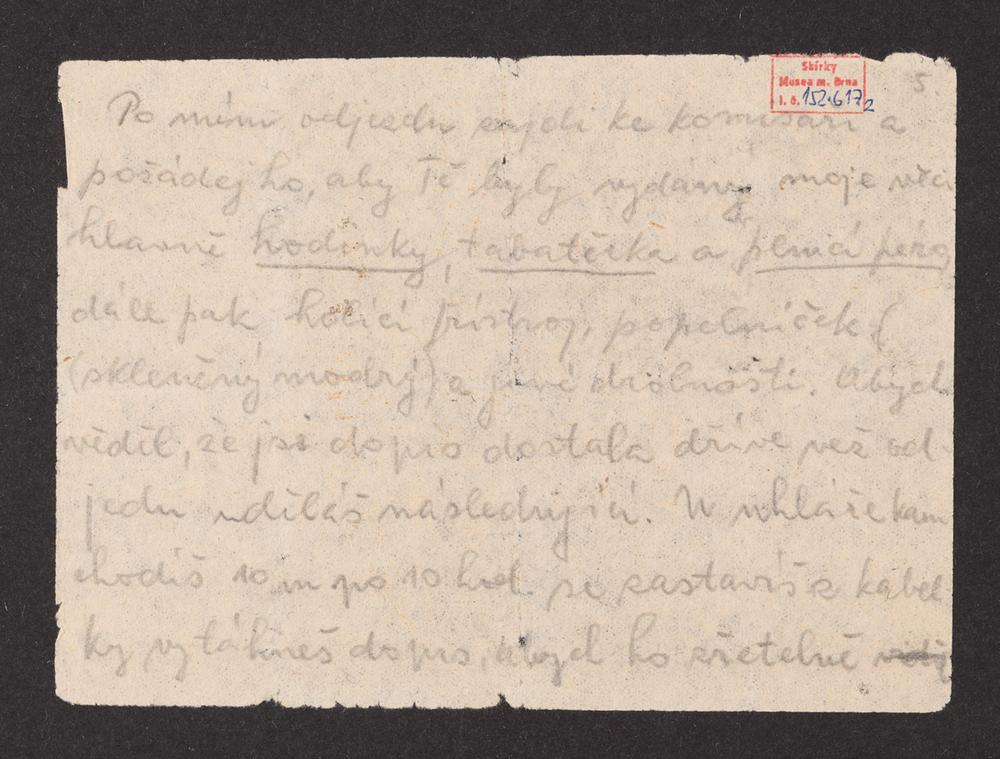 Sbírky
Musea m. Brna
i. č. 152.617/2
5.
Po mém odjezdu zajdi ke komisaři a
požádej ho, aby Tě byly vydány moje věci
hlavně hodinky, tabatěrka a plnicí péro,
dále pak holicí přístroj, popelníček
(skleněný modrý) a jiné drobnosti. Abych
věděl, že jsi dopis dostala dříve než od-
jedu uděláš následující. U uhláře kam
chodíš 10 m po 10 hod. se zastavíš z kabel
ky vytáhneš dopis, abych ho zřetelně